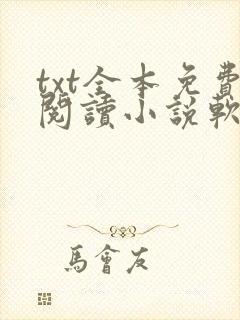 txt全本免費
閱讀小說軟
馬會友